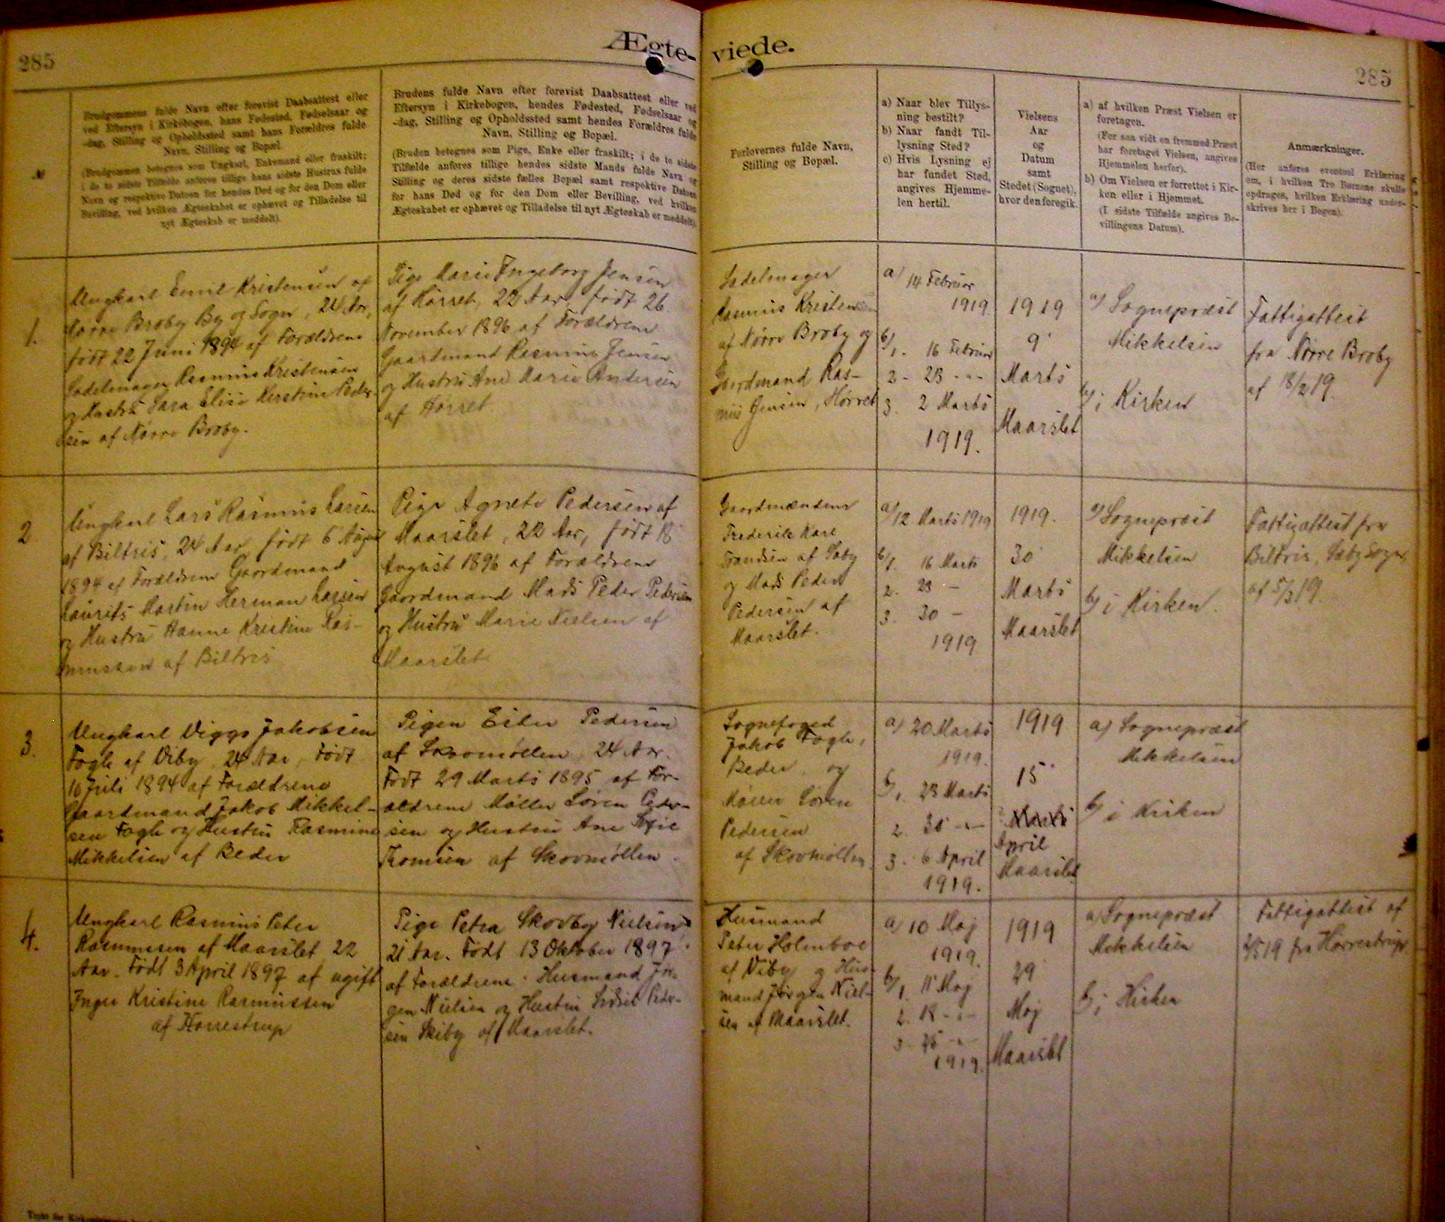 285
Ægte-
viede.
285
№
Brudgommens fulde Navn efter forevist Daabsattest eller
ved Eftersyn i Kirkebogen, hans Fødested, Fødselsaar og
-dag, Stilling og Opholdssted samt hans Forældres fulde
Navn, Stilling og Bopæl.
(Brudgommen betegnes som Ungkarl, Enkemand eller fraskilt;
i de to sidste Tilfælde anføres tillige hans sidste Hustrus fulde
Navn og respektive Datoen for hendes Død og for den Dom eller
Bevilling, ved hvilken Ægteskabet er ophævet og Tilladelse til
nyt Ægteskab er meddelt).
Brudens fulde Navn efter forevist Daabsattest eller ved
Eftersyn i Kirkebogen, hendes Fødested, Fødselsaar og
-dag, Stilling og Opholdssted samt hendes Forældres fulde
Navn, Stilling og Bopæl.
(Bruden betegnes som Pige, Enke eller fraskilt; i de to sidste
Tilfælde anføres tillige hendes sidste Mands fulde Navn og
Stilling og deres sidste fælles Bopæl samt respektive Datoen
for hans Død og for den Dom eller Bevilling, ved hvilken
Ægteskabet er ophævet og Tilladelse til nyt Ægteskab er meddelt).
Forlovernes fulde Navn,
Stilling og Bopæl.
a) Naar blev Tillys-
ning bestilt?
b) Naar fandt Til-
lysning Sted?
c) Hvis Lysning ej
har fundet Sted,
angives Hjemme-
len hertil.
Vielsens
Aar
og
Datum
samt
Stedet (Sognet),
hvor den foregik.
a) af hvilken Præst Vielsen er
foretagen.
(For saa vidt en fremmed Præst
har foretaget Vielsen, angives
Hjemmelen herfor).
b) Om Vielsen er forrettet i Kir-
ken eller i Hjemmet.
(I sidste Tilfælde angives Be-
villingens Datum).
Anmærkninger.
(Her anføres eventuel Erklæring
om, i hvilken Tro Børnene skulle
opdrages, hvilken Erklæring under-
skrives her i Bogen).
1.
Ungkarl Emil Kristensen af
Nørre Broby By og Sogn, 24 Aar,
født 22 Juni 1894 af Forældrene
Sadelmager Rasmus Kristensen
og Hustru Sara Elise Kerstine Peder-
sen af Nørre Broby.
Pige Marie Ingeborg Jensen
af Hørret, 22 Aar, født 26
November 1896 af Forældrene
Gaardmand Rasmus Jensen
og Hustru Ane Marie Andersen
af Hørret
Sadelmager
Rasmus Kristensen
af Nørre Broby og
Gaardmand Ras-
mus Jensen, Hørret
a) 14 Februar
1919
b/1. 16 Februar
2 - 23 - -
3. 2 Marts
1919.
1919
9
Marts
Maarslet
a) Sognepræst
Mikkelsen
b) i Kirken
Fattigattest
fra Nørre Broby
af 18/2 19.
2
Ungkarl Lars Rasmus Larsen
af Biltris, 24 Aar, født 6 August
1894 af Forældrene Gaardmand
Laurits Martin Herman Larsen
og Hustru Hanne Kristine Ras-
mussen af Biltris
Pige Agnete Pedersen af
Maarslet, 22 Aar, født 18
August 1896 af Forældrene
Gaardmand Mads Peder Pedersen
og Hustru Marie Nielsen af
Maarslet
Gaardmændene
Frederik Karl
Frandsen af Saby
og Mads Peder
Pedersen af
Maarslet.
a/12 Marts 1919
b/1. 16 Marts
2. 23 -
3. 30 -
1919
1919.
30
Marts
Maarslet
a) Sognepræst
Mikkelsen
b) i Kirken.
Fattigattest fra
Biltris, Saby Sogn,
af 5/3 19.
3.
Ungkarl Viggo Jakobsen
Fogh af Viby, 24 Aar, Født
10 Juli 1894 af Forældrene
Gaardmand Jakob Mikkel-
sen Fogh og Hustru Rasmine
Mikkelsen af Beder
Pigen Ester Pedersen
af Skovmøllen, 24 Aar.
Født 29 Marts 1895 af For-
ældrene Møller Søren Peder-
sen og Hustru Ane Sofie
Thomsen af Skovmøllen.
Sognefoged
Jakob Fogh,
Beder, og
Møller Søren
Pedersen
af Skovmøllen
a) 20 Marts
1919.
b/1. 23 Marts
2. 30 -
3. 6 April
1919.
1919
15
Marts
April
Maarslet
a) Sognepræst
Mikkelsen
b) i Kirken
4.
Ungkarl Rasmus Peter
Rasmussen af Maarslet 22
Aar. Født 3 April 1897 af ugift
Inger Kristine Rasmussen
af Hørrestrup
Pige Petra Skovby Nielsen
21 Aar. Født 13 Oktober 1897
af Forældrene. Husmand Jør-
gen Nielsen og Hustru Peder-
sen Skiby af Maarslet.
Husmand
Peter Holmboe
af Viby og Hus-
mand Jørgen Niel-
sen af Maarslet.
a) 10 Maj
1919.
b/1. 11 Maj
2. 18 - -
3. 25 - -
1919.
1919
29
Maj
Maarslet
a) Sognepræst
Mikkelsen
b) i Kirken
Fattigattest af
19 fra Hørrestrup.